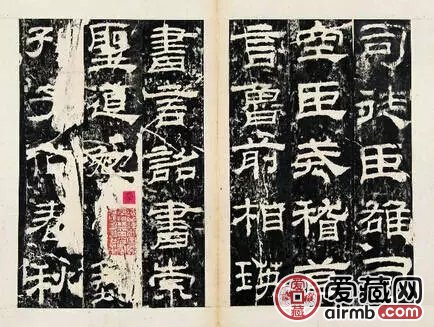 司徒臣雄司
空臣戒稽首
言魯前相瑛
書言詔書崇
聖道勉藝
孔子作春秋
爱藏网
airmb.com